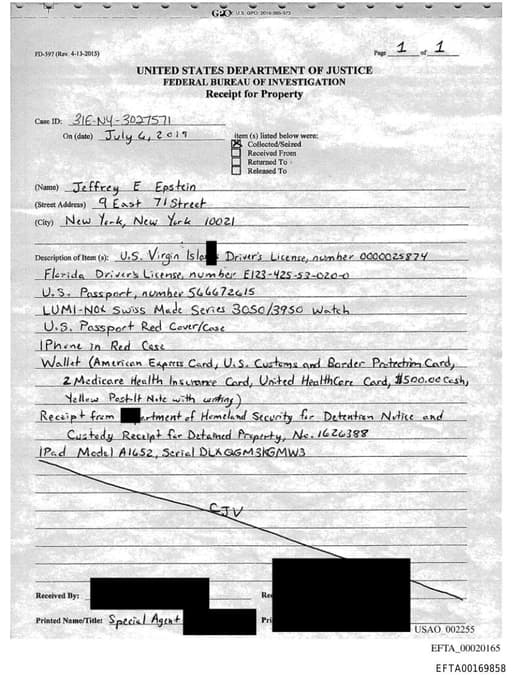 GPO U.S. GPO:
FD-597 (Rev. 4-13-2015) Page 1 of 1
UNITED STATES DEPARTMENT OF JUSTICE
FEDERAL BUREAU OF INVESTIGATION
Receipt for Property
Case ID: 31E-NY-3027571
On (date) July 6, 2019
item (s) listed below were:
Collected/Seized
Received From
Returned To
Released To
(Name) Jeffrey E Epstein
(Street Address) 9 East 71 Street
(City) New York, New York 10021
Description of Item (s): U.S. Virgin Isla s Driver's License, number 0000025874
Florida Driver's License, number E123-425-53-020-0
U.S. Passport, number 566672615
LUMI-NOX Swiss Made Series 3050/3950 Watch
U.S. Passport Red Cover/Case
IPhone in Red Case
Wallet (American Express Card, U.S. Customs and Border Protection Card,
2 Medicare Health Insurance Card, United HealthCare Card, $500.00 Cash,
Yellow Post-It Note with writing)
Receipt from artment of Homeland Security for Detention Notice and
Custody Receipt for Detained Property, No. 1626388
IPad Model A1652, Serial DLXQGM3KGMW3
CJV
Received By: Rec
Printed Name/Title: Special Agent Pri
USAO_002255
EFTA_00020165
EFTA00169858